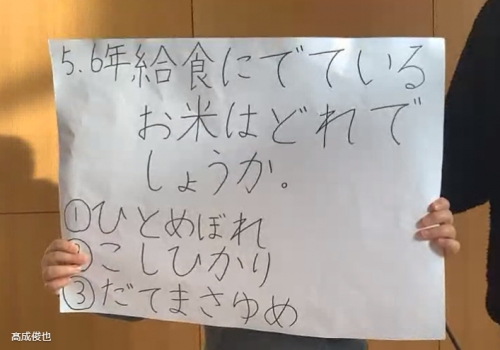 5.6年給食にでている
お米はどれで
しょうか。
①ひとめぼれ
②こしひかり
③だてまさゆめ
髙成俊也